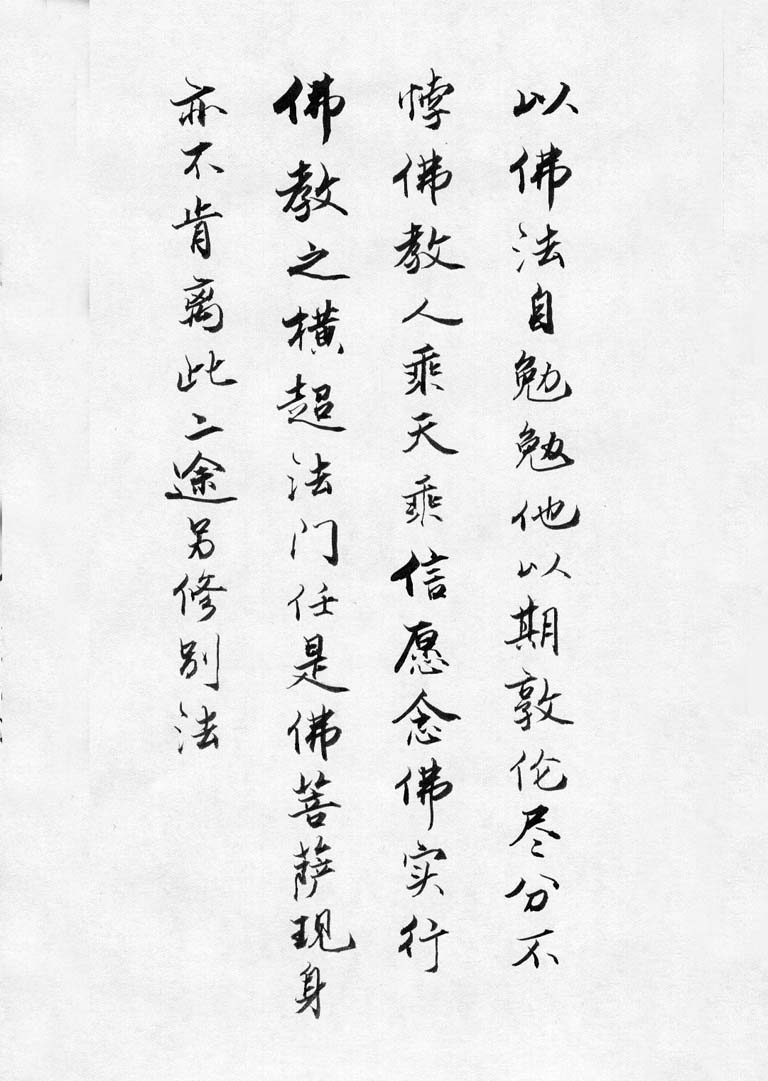 以佛法自勉勉他以期敦伦尽分不
悖佛教人乘天乘信愿念佛实行
佛教之横超法门任是佛菩萨现身
亦不肯离此二途另修别法